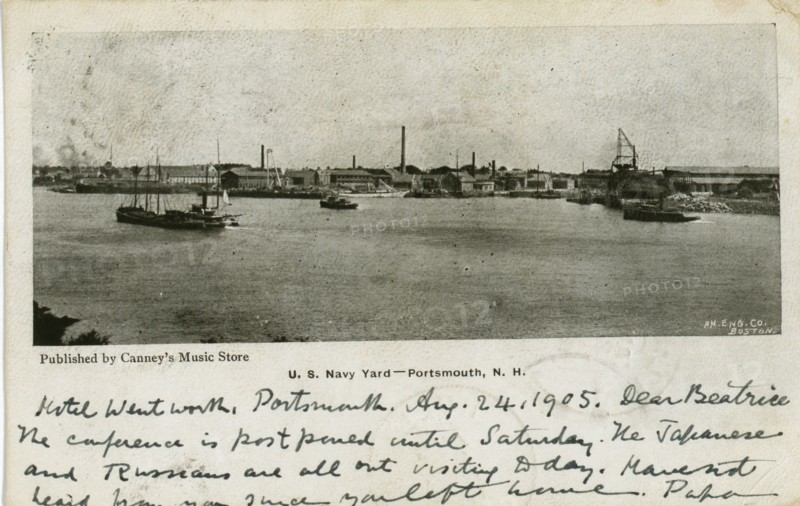 AM. ENG. CO.
BOSTON.
Published by Canney's Music Store
U. S. Navy Yard—Portsmouth, N. H.
Hotel Wentworth, Portsmouth. Aug. 24, 1905. Dear Beatrice
The conference is postponed until Saturday. The Japanese
and Russians are all out visiting today. Havent
heard from you since you left home. Papa
PHOTO12
PHOTO12
PHOTO12